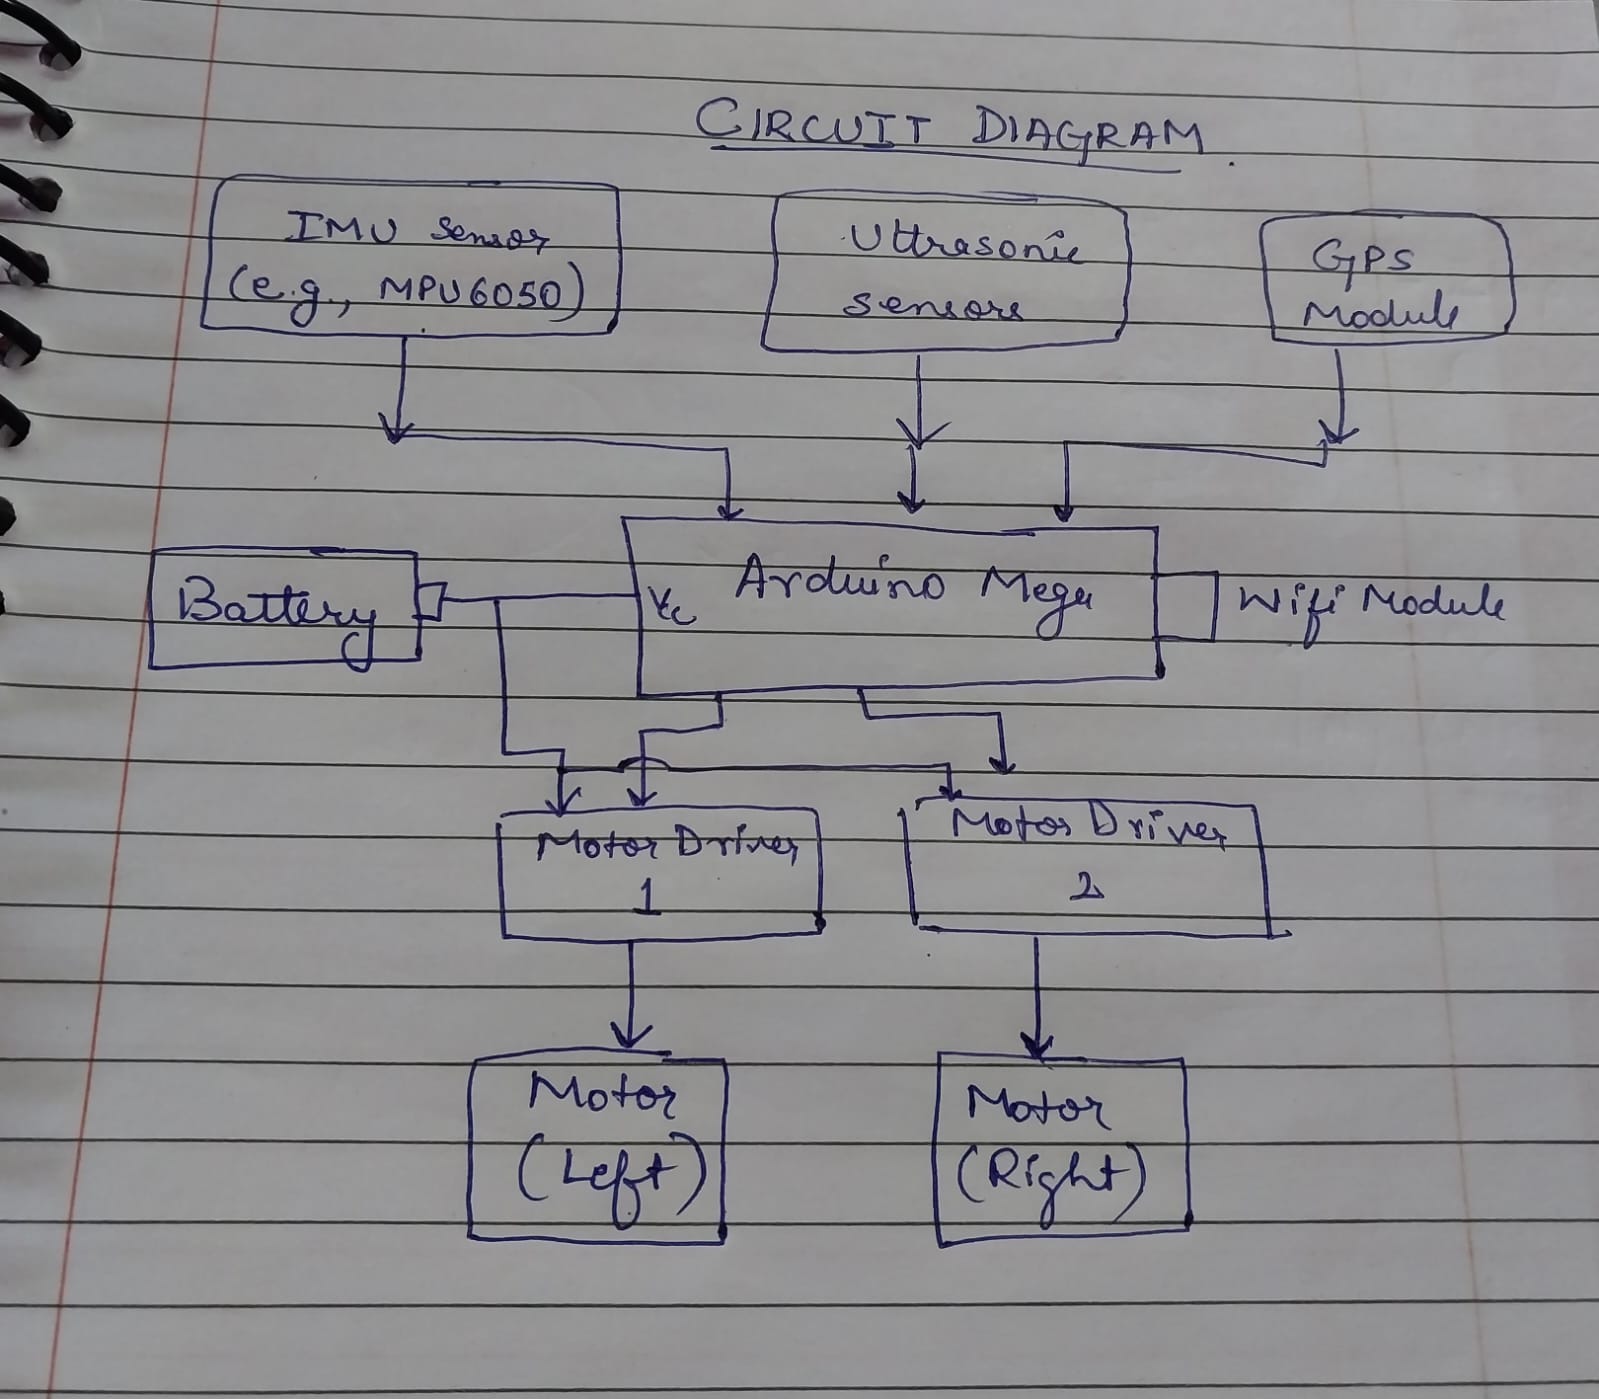 CIRCUIT DIAGRAM.
IMU Sensor
(e.g., MPU6050)
Ultrasonic
sensors
GPS
Module
Battery
Vcc
Arduino Mega
Wifi Module
Motor Driver
1
Motor Driver
2
Motor
(Left)
Motor
(Right)